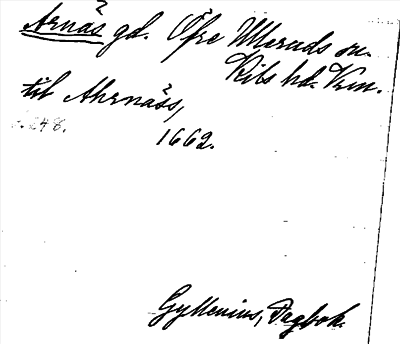 Årnäs gd. Öfre Ulleruds sn.
Kils hd. Vrm.
till Ahrnäss,
s. 248.
1662.
Gyllenius, Dagbok.